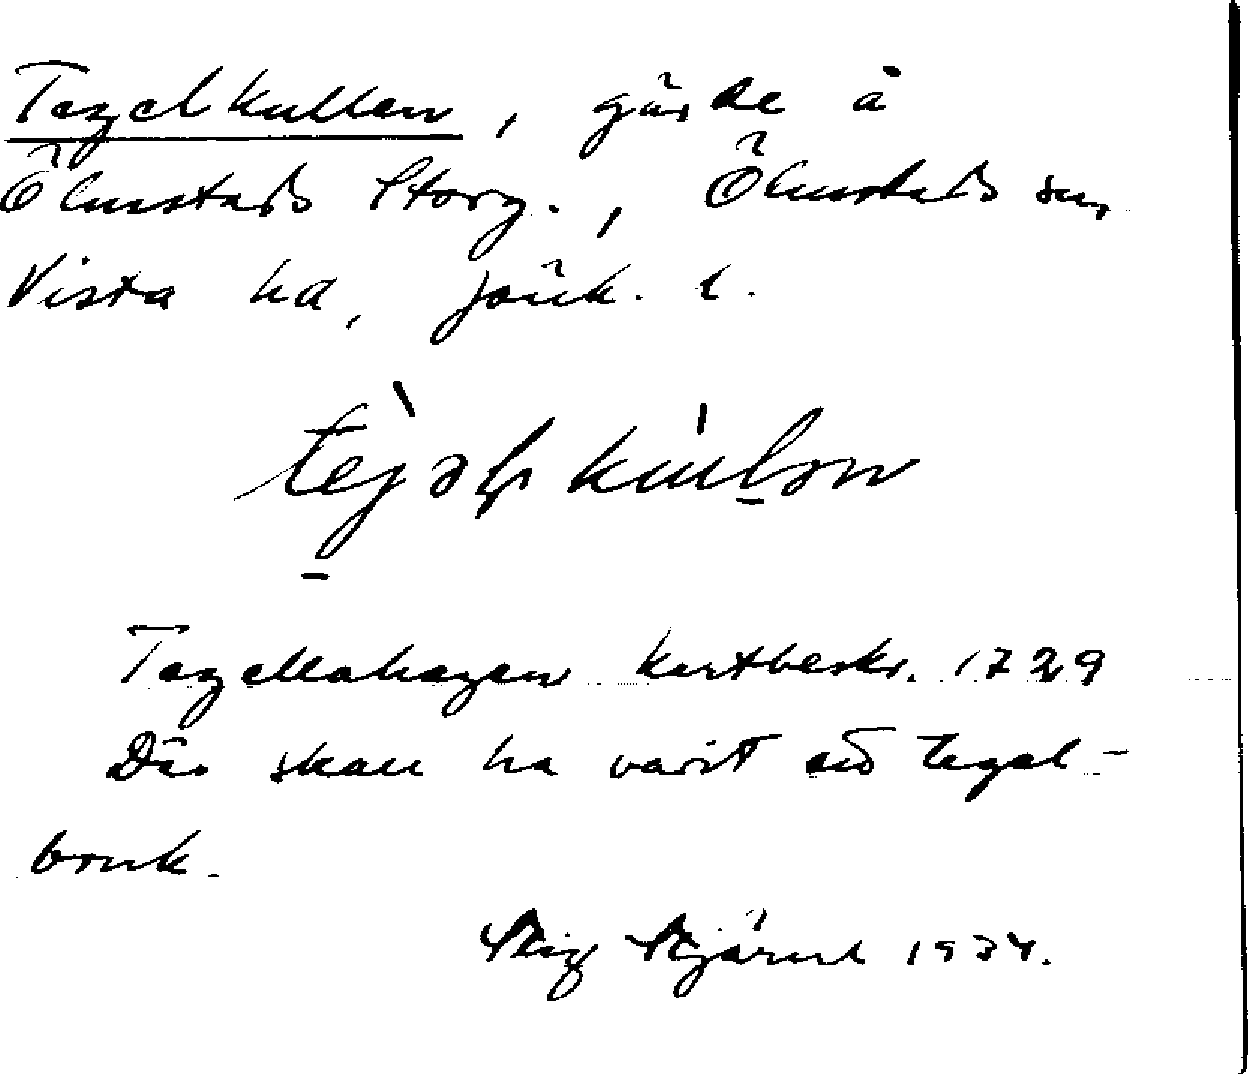 Tegelkullen, gärde å
Ölmstads Storg., Ölmstads sn,
Vista hd, Jönk. l.
Tegellahagen kartbeskr. 1729
Där skall ha varit ett tegel-
bruk.
Stig Stjärnd 1934.